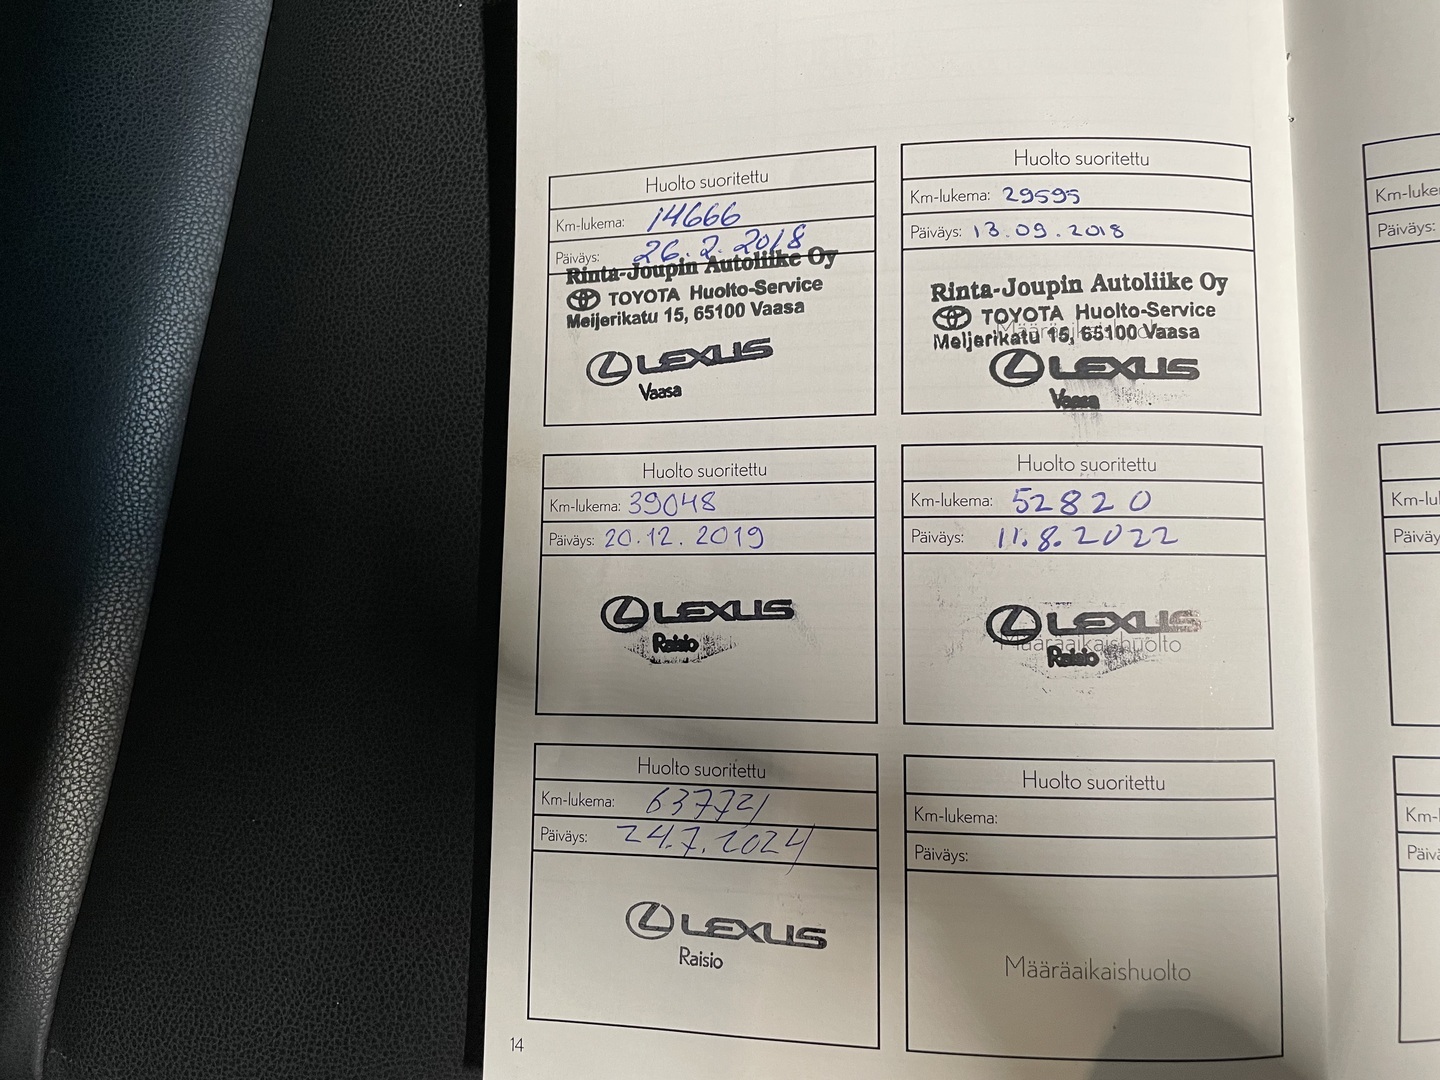 Huolto suoritettu
Km-lukema: 14666
Päiväys: 26.2.2018
Rinta-Joupin Autoliike Oy
TOYOTA Huolto-Service
Meijerikatu 15, 65100 Vaasa
LEXUS
Vaasa
Huolto suoritettu
Km-lukema: 29595
Päiväys: 13.09.2018
Rinta-Joupin Autoliike Oy
TOYOTA Huolto-Service
Määräaikaishuolto
Meijerikatu 15, 65100 Vaasa
LEXUS
Vaasa
Huolto suoritettu
Km-lukema: 39048
Päiväys: 20.12.2019
LEXUS
Raisio
Huolto suoritettu
Km-lukema: 52820
Päiväys: 11.8.2022
LEXUS
Määräaikaishuolto
Raisio
Huolto suoritettu
Km-lukema: 63772
Päiväys: 24.7.2024
LEXUS
Raisio
Huolto suoritettu
Km-lukema:
Päiväys:
Määräaikaishuolto
14
Km-luke
Päiväys:
Km-lu
Päiväy
Km-l
Päivä